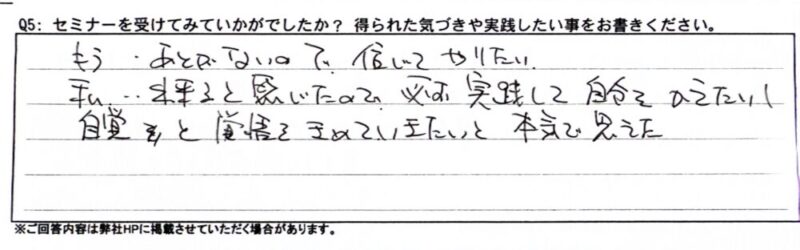 Q5: セミナーを受けてみていかがでしたか? 得られた気づきや実践したい事をお書きください。
もう、あとがないので、信じて やりたい.
私..出来ると感じたので、必ず 実践して 自分を かえたいし
自覚 と 覚悟を きめていきたいと 本気で思えた
※ご回答内容は弊社HPに掲載させていただく場合があります。